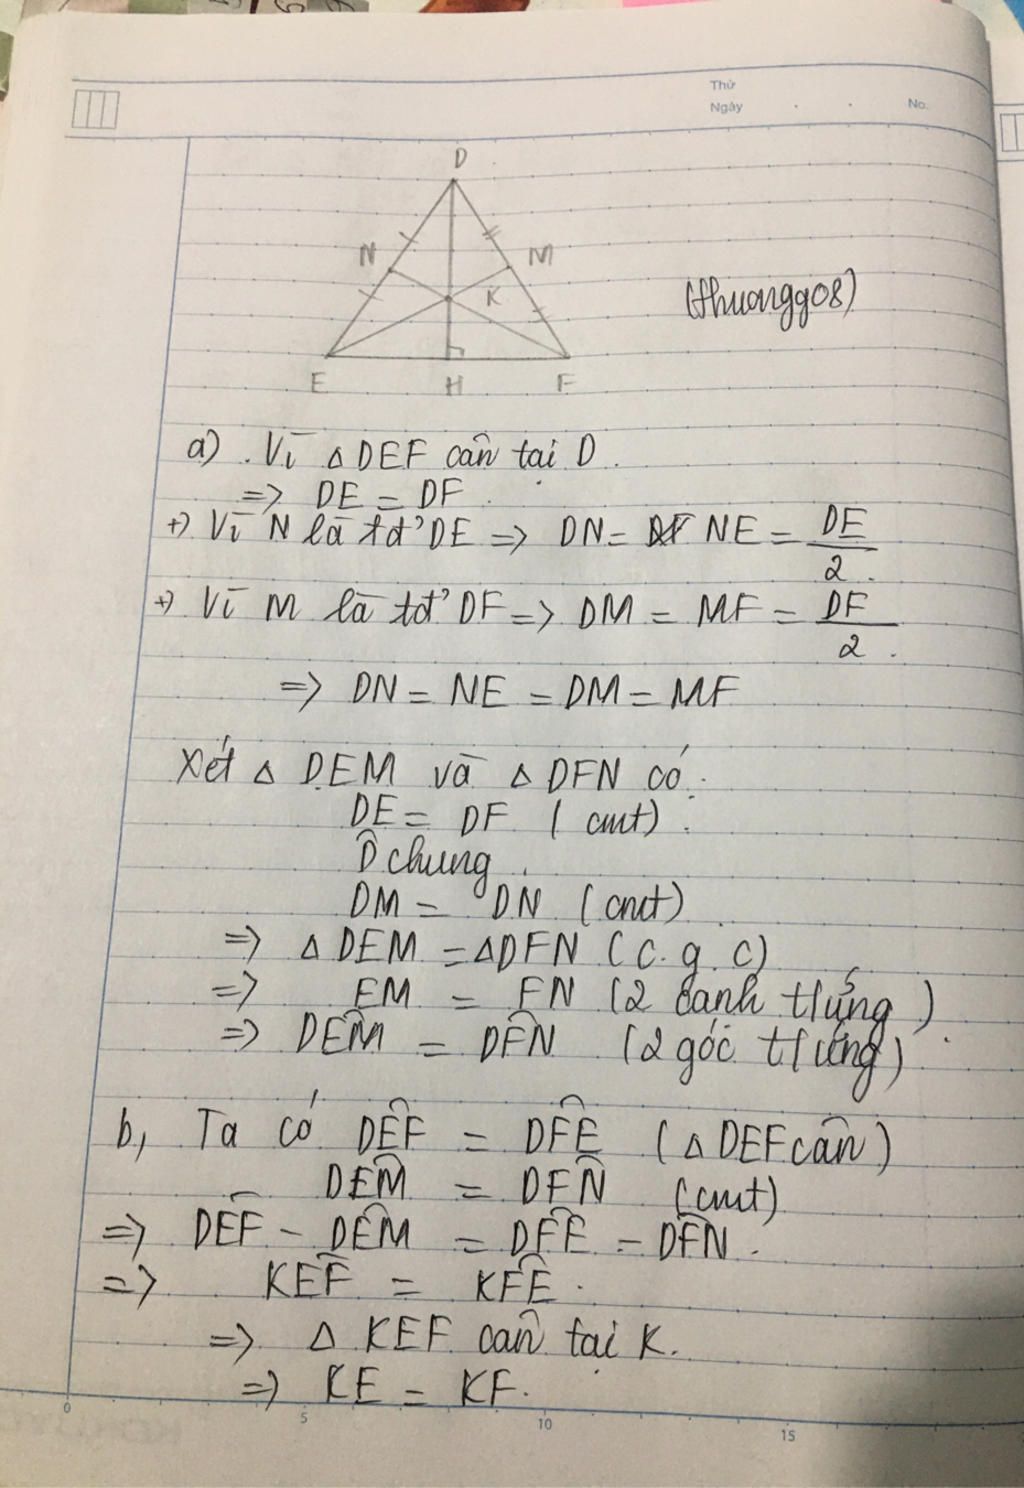 Thứ
Ngày . . No.
D
N M
K
(thuongg08)
E H F
a) . Vì △ DEF cân tại D.
=> DE = DF
+) Vì N là tđ' DE => DN = NE = DE/2.
+) Vì M là tđ' DF => DM = MF = DF/2.
=> DN = NE = DM = MF
Xét △ DEM và △ DFN có:
DE = DF ( cmt).
D̂ chung.
DM = DN (cmt)
=> △ DEM = △DFN (c.g.c)
=> EM = FN (2 cạnh t/ứng)
=> DÊM = DF̂N (2 góc t/ứng).
b, Ta có DÊF = DF̂E (△ DEF cân)
DÊM = DF̂N (cmt)
=> DÊF - DÊM = DF̂E - DF̂N.
=> KÊF = KF̂E.
=> △ KEF cân tại K.
=> KE = KF.
0 5 10 15